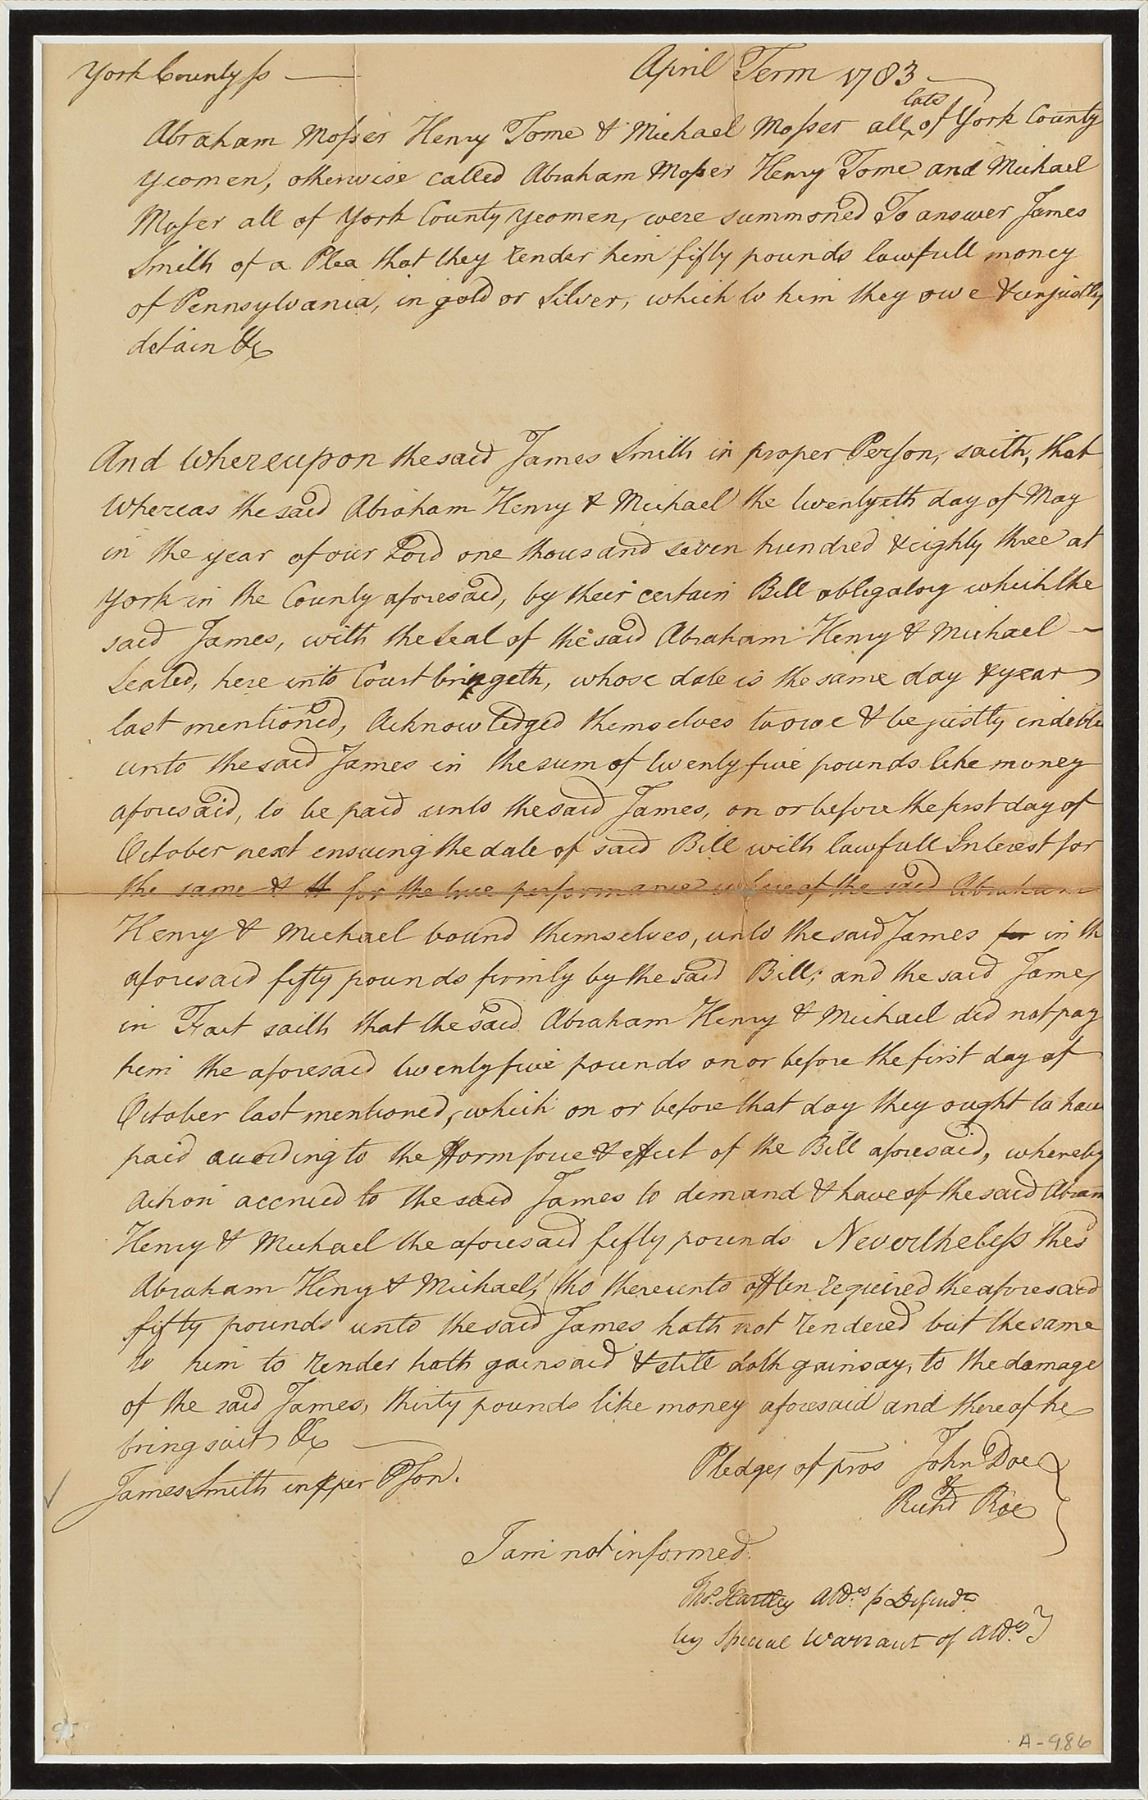 York County ss — April Term 1783 —
Abraham Mosser Henry Tome & Michael Mosser all late of York County
yeomen, otherwise called Abraham Mosser Henry Tome and Michael
Moser all of York County yeomen, were summoned To answer James
Smith of a Plea that they render him fifty pounds lawfull money
of Pennsylvania, in gold or Silver, which to him they owe & unjustly
detain &c
And Whereupon the said James Smith in proper Person, saith, that
Whereas the said Abraham Henry & Michael the day of May
in the year of our Lord one thousand seven hundred & eighty three at
York in the County aforesaid, by their certain Bill obligatory which the
said James, with the Seal of the said Abraham Henry & Michael —
Sealed, here into Court bringeth, whose date is the same day & year
last mentioned, Acknowledged themselves to owe & be justly indebte
unto the said James in the sum of twenty five pounds like money
aforesaid, to be paid unto the said James, on or before the first day of
October next ensuing the date of said Bill with lawfull Interest for
the same & for the true performance of the said Abraham
Henry & Michael bound themselves, unto the said James for in th
aforesaid fifty pounds firmly by the said Bill; and the said James
in Fact saith that the said Abraham Henry & Michael did not pay
him the aforesaid twenty five pounds on or before the first day of
October last mentioned, which on or before that day they ought to have
paid according to the fform force & effect of the Bill aforesaid, whereby
Action accrued to the said James to demand & have of the said Abram
Henry & Michael the aforesaid fifty pounds Nevertheless the sd
Abraham Henry & Michael, (tho thereunto often required the aforesaid
fifty pounds unto the said James hath not rendered but the same
to him to render hath gainsaid & still doth gainsay, to the damage
of the said James, thirty pounds like money aforesaid and thereof he
brings suit &c —
James Smith in pper Pson. Pledges of pros John Doe
&
Richd Roe
I am not informed.
Thos. Hartley p Defendts
by Special Warrant of
95
A-986